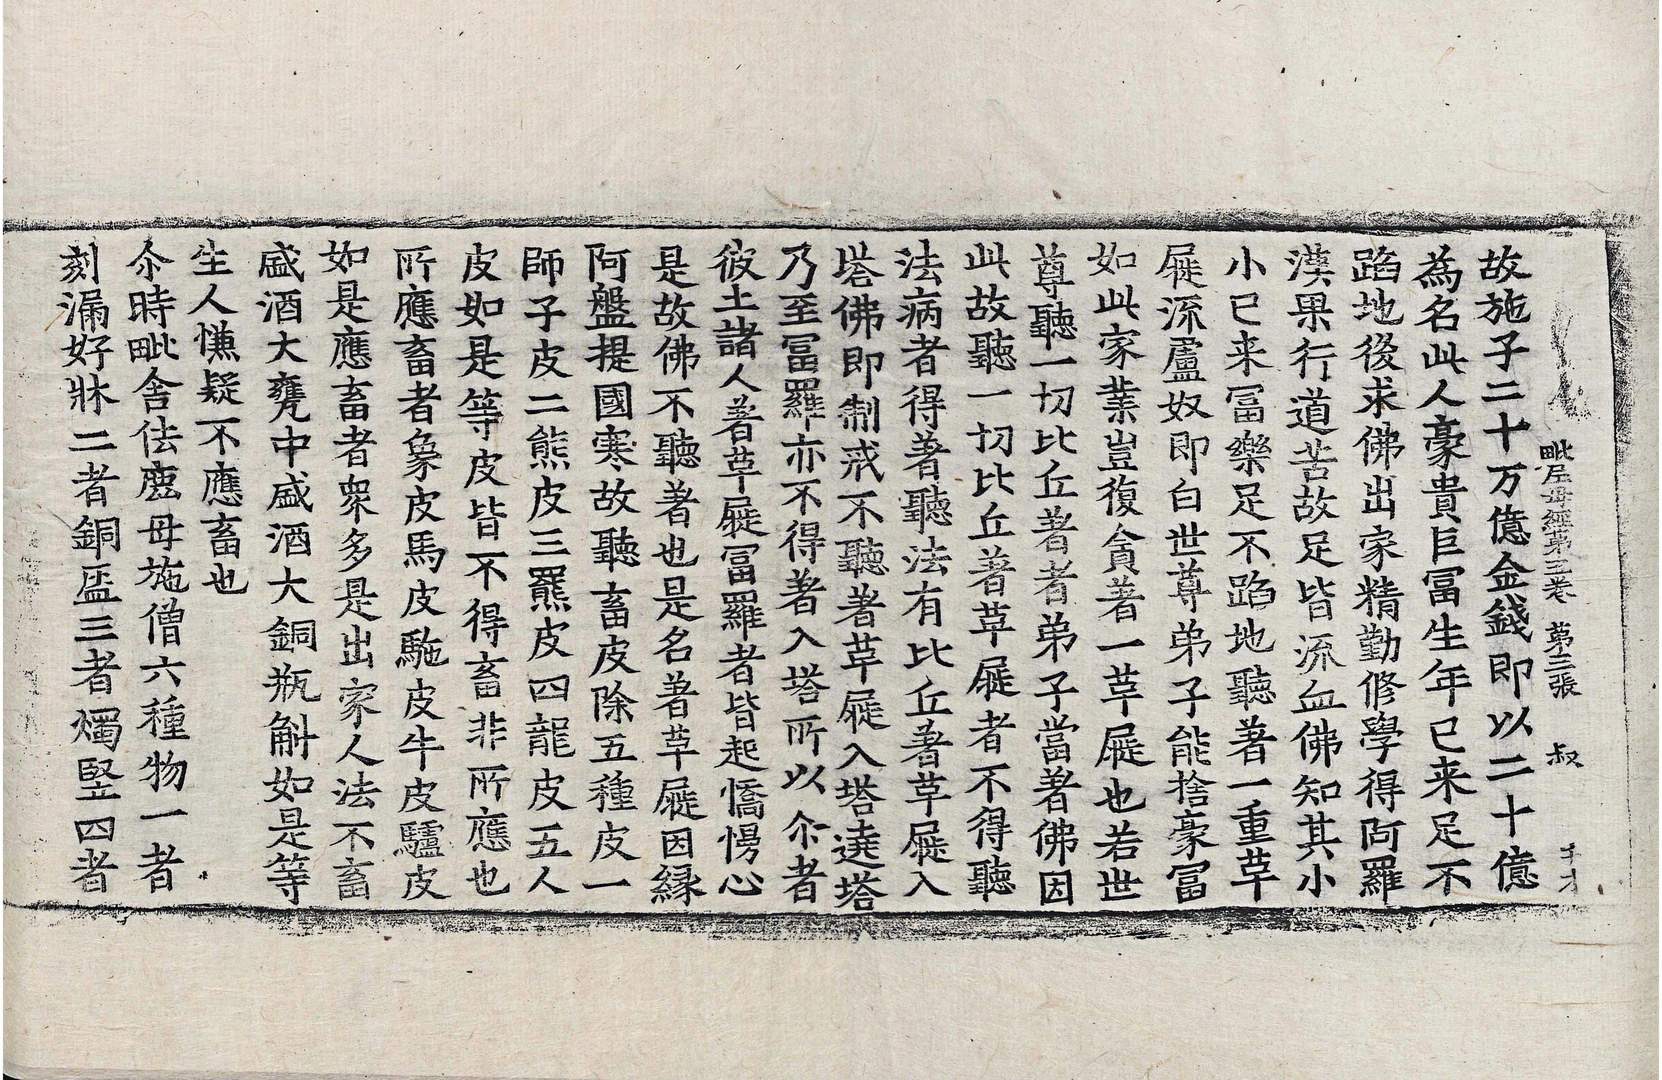 毗尼母經第三卷 第三張 叔
故施子二十万億金錢即以二十億
為名此人豪貴巨冨生年已来足不
蹈地後求佛出家精勤修學得阿羅
漢果行道苦故足皆流血佛知其小
小已来冨樂足不蹈地聽著一重草
屣流盧奴即白世尊弟子能捨豪冨
如此家業豈復貪著一草屣也若世
尊聽一切比丘著者弟子當著佛因
此故聽一切比丘著草屣者不得聽
法病者得著聽法有比丘著草屣入
塔佛即制戒不聽著草屣入塔遶塔
乃至冨羅亦不得著入塔所以尒者
彼土諸人著草屣冨羅者皆起憍慢心
是故佛不聽著也是名著草屣因縁
阿盤提國寒故聽畜皮除五種皮一
師子皮二熊皮三羆皮四龍皮五人
皮如是等皮皆不得畜非所應也
所應畜者象皮馬皮駞皮牛皮驢皮
如是應畜者衆多是出家人法不畜
盛酒大甕中盛酒大銅瓶斛如是等
生人慊疑不應畜也
尒時毗舍佉鹿母施僧六種物一者
刻漏好牀二者銅盔三者燭竪四者